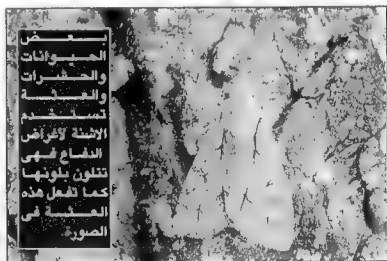 بعض
الحيوانات
والحشرات
والعثة
تستخدم
الابنية لاغراض
الدفاع فهى
تتلون بلونها
كما تفعل هذه
العثة فى
الصورة.